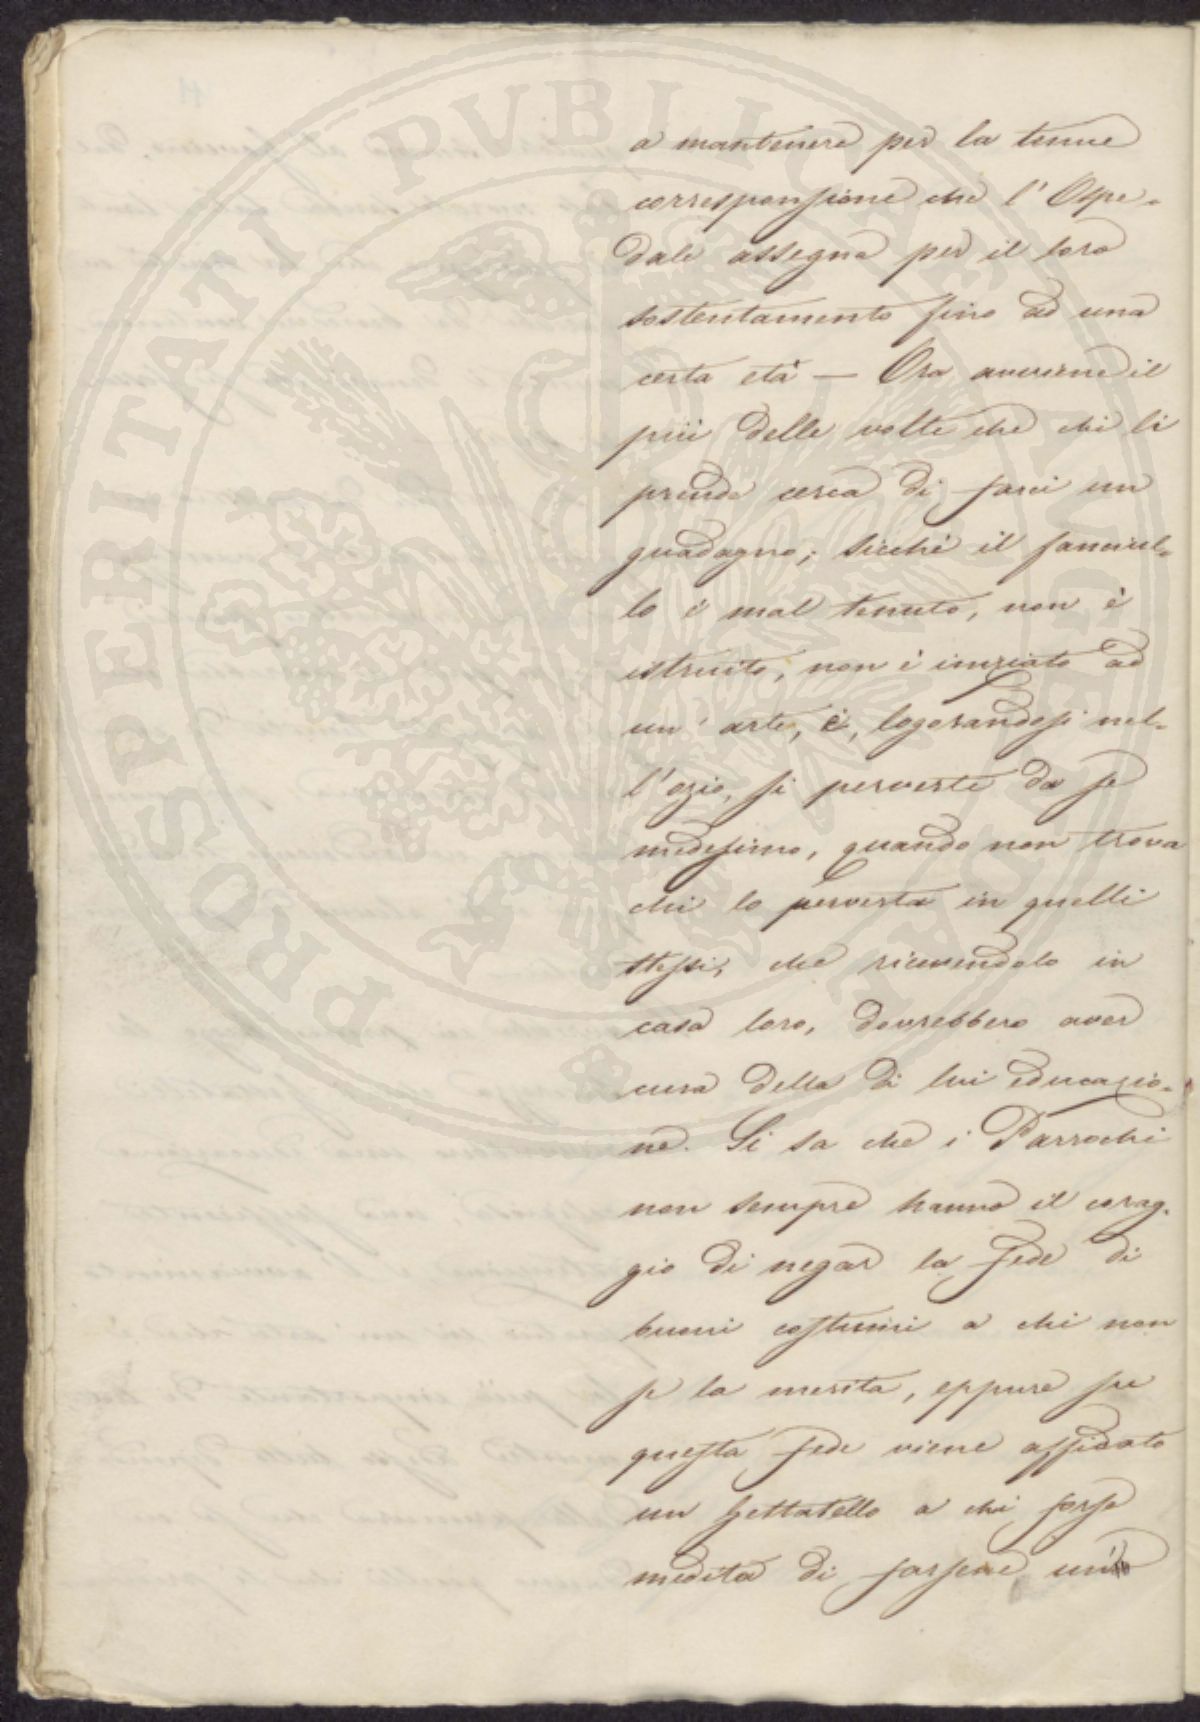 a mantenere per la tenue
corresponsione che l'Ospe-
dale assegna per il loro
sostentamento fino ad una
certa età — Ora avviene il
più delle volte che chi li
prende cerca di farci un
guadagno; sicché il fanciul-
lo è mal tenuto, non è
istruito, non è iniziato ad
un' arte, è, logorandosi nel-
l'ozio, si perverte da se
medesimo, quando non trova
chi lo perverta in quelli
stessi, che ricevendolo in
casa loro, dovrebbero aver
cura della di lui educazio-
ne. Si sa che i Parrochi
non sempre hanno il corag-
gio di negar la fede di
buoni costumi a chi non
se la merita, eppure su
questa fede viene affidato
un gettatello a chi forse
medita di farsene un
PROSPERITATI PVBLICAE AVGENDAE